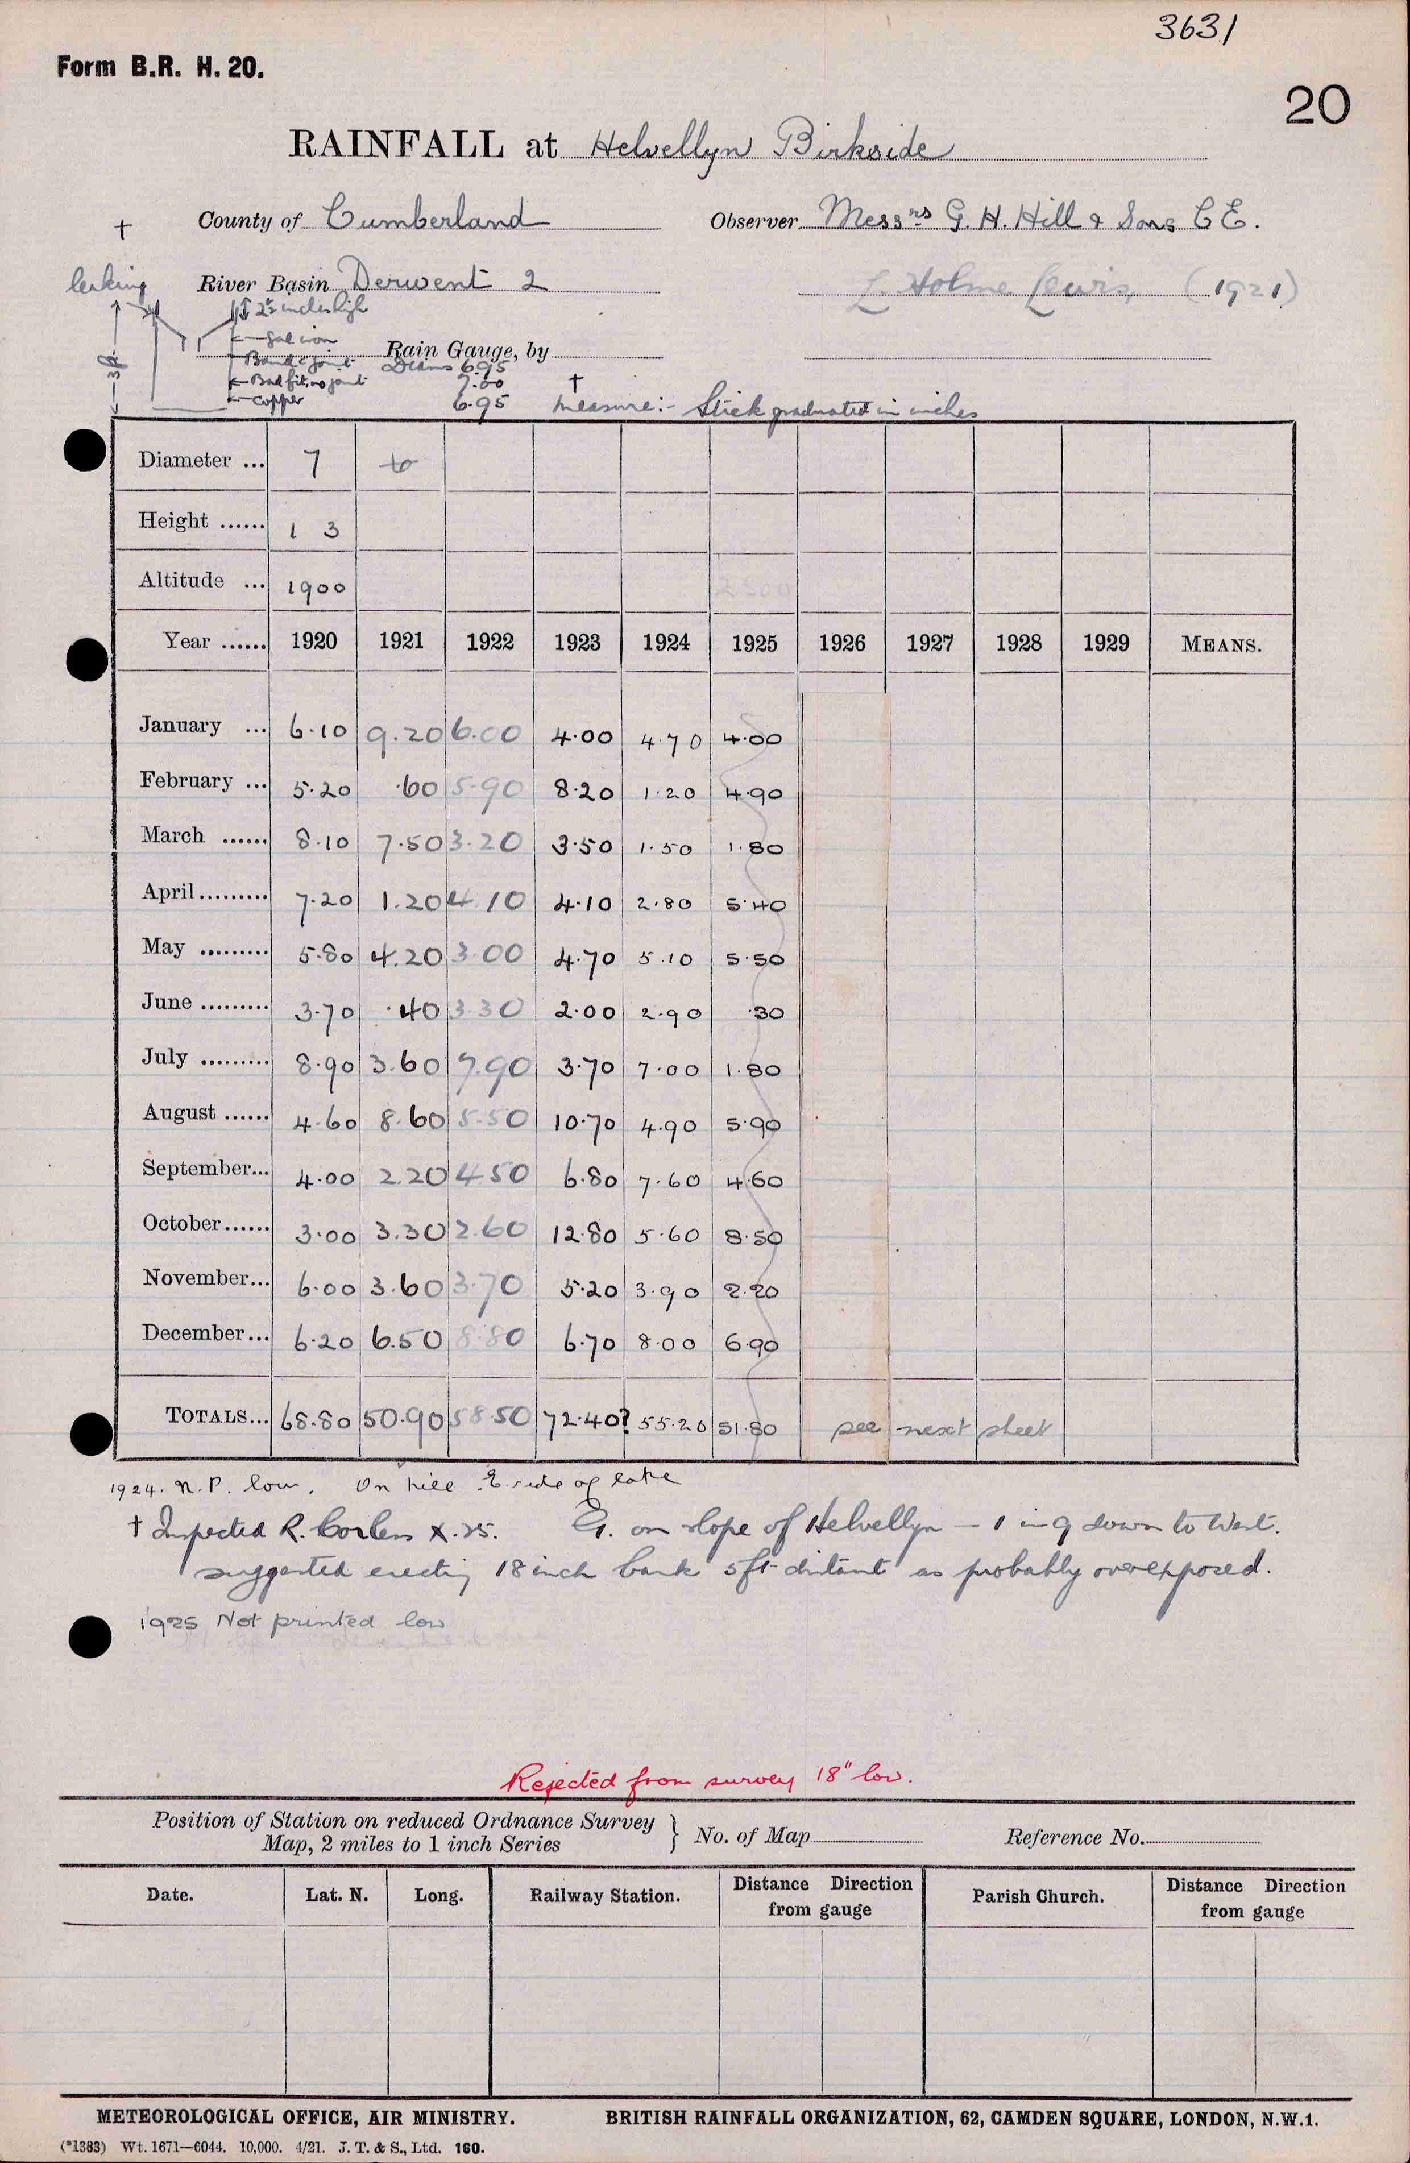 3631
Form B.R. H. 20.
20
RAINFALL at Helvellyn Birkside
County of Cumberland Observer Messrs G. H. Hill & Sons C E.
†
leaking River Basin Derwent 2 L Holme Lewis, (1921)
2½ inches high
Gal iron
Rain Gauge, by
Diams 6.95
Bad fit, no joint 7.00 †
copper 6.95 Measure:- Stick graduated in inches
Diameter ... 7
Height ...... 1 3
Altitude ... 1900
Year ...... 1920 1921 1922 1923 1924 1925 1926 1927 1928 1929 MEANS.
January ... 6.10 9.20 6.00 4.00 4.70 4.00
February ... 5.20 .60 5.90 8.20 1.20 4.90
March ...... 8.10 7.50 3.20 3.50 1.50 1.80
April......... 7.20 1.20 4.10 4.10 2.80 5.40
May ......... 5.80 4.20 3.00 4.70 5.10 5.50
June ......... 3.70 .40 3.30 2.00 2.90 .30
July ......... 8.90 3.60 7.90 3.70 7.00 1.80
August ...... 4.60 8.60 5.50 10.70 4.90 5.90
September... 4.00 2.20 4.50 6.80 7.60 4.60
October...... 3.00 3.30 2.60 12.80 5.60 8.50
November... 6.00 3.60 3.70 5.20 3.90 2.20
December... 6.20 6.50 8.80 6.70 8.00 6.90
TOTALS... 68.80 50.90 58.50 72.40? 55.20 51.80 see next sheet
1924. N.P. low. On hill E side of lake
† Inspected R. Corless X.25. G. on slope of Helvellyn – 1 in 9 down to West.
suggested erecting 18 inch bank 5ft distant as probably overexposed.
1925 Not printed low
Rejected from survey 18" low.
Position of Station on reduced Ordnance Survey
Map, 2 miles to 1 inch Series } No. of Map Reference No.
Date. Lat. N. Long. Railway Station. Distance Direction from gauge Parish Church. Distance Direction from gauge
METEOROLOGICAL OFFICE, AIR MINISTRY. BRITISH RAINFALL ORGANIZATION, 62, CAMDEN SQUARE, LONDON, N.W.1.
(*1383) Wt. 1671—6044. 10,000. 4/21. J. T. & S., Ltd. 160.